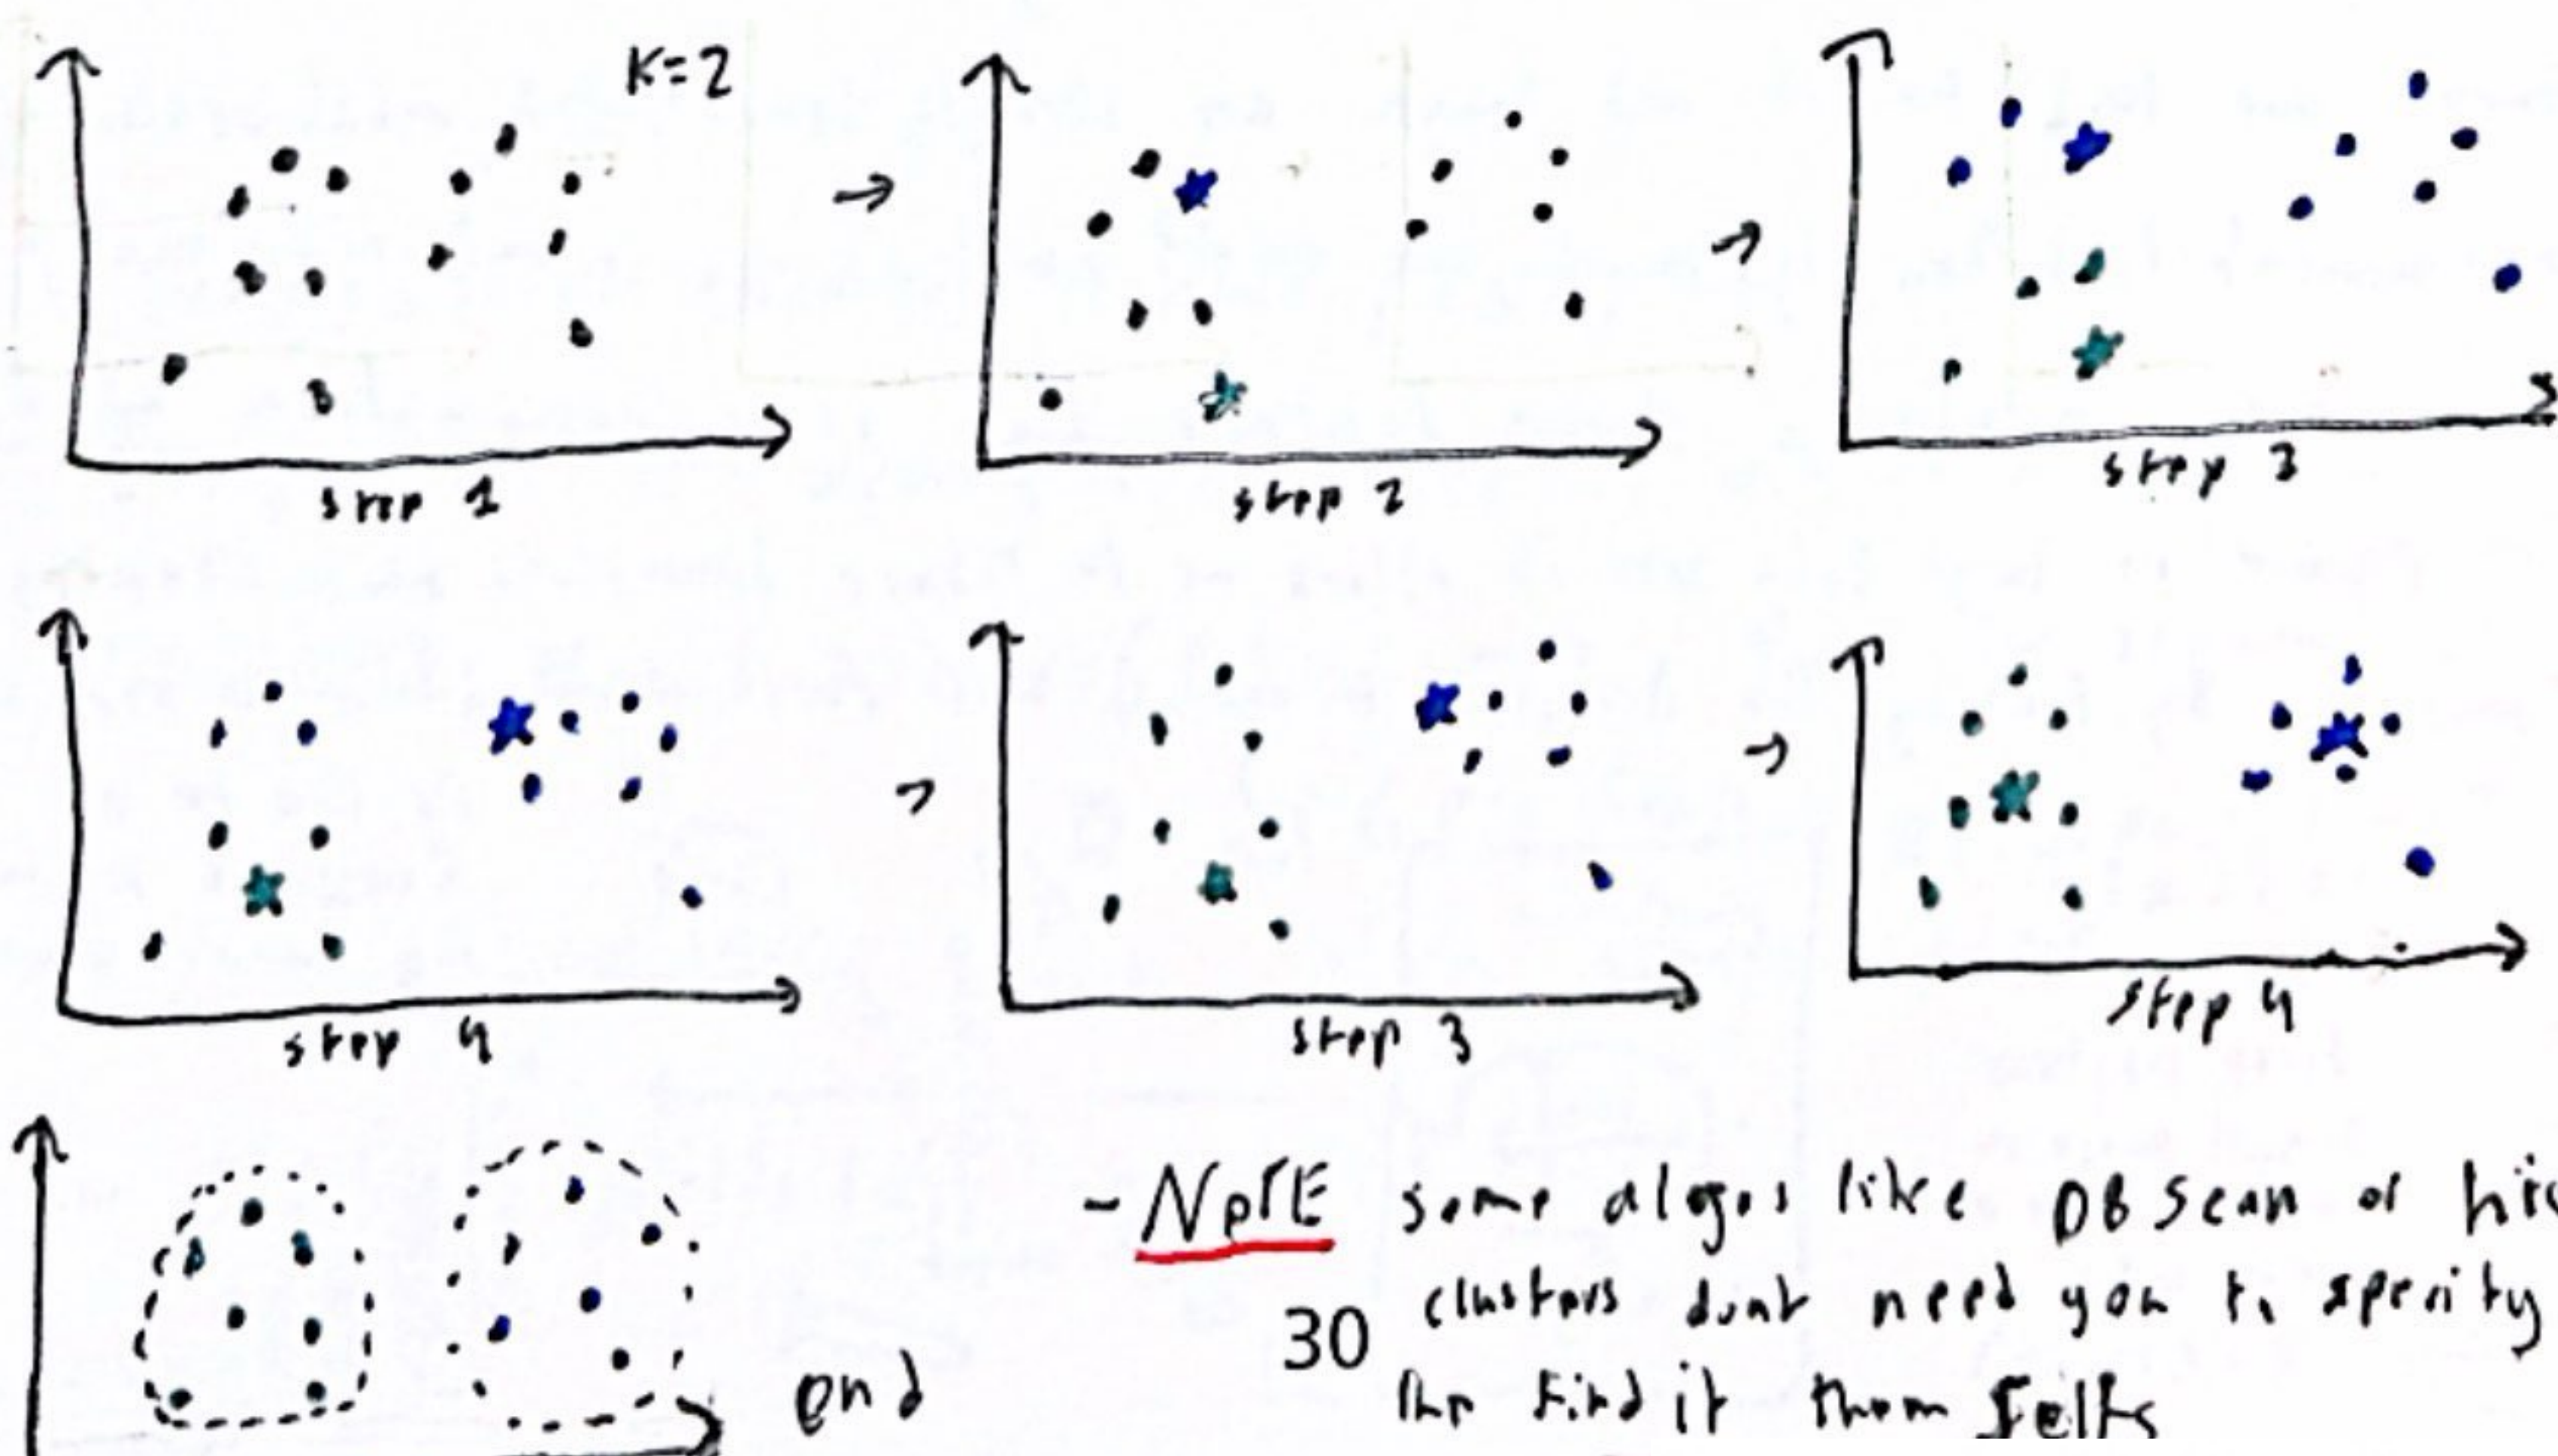 K=2
step 1
step 2
step 3
step 4
step 3
step 4
end
- NOTE some algos like DBScan or
clusters dont need you to specify
find it them selfs
30